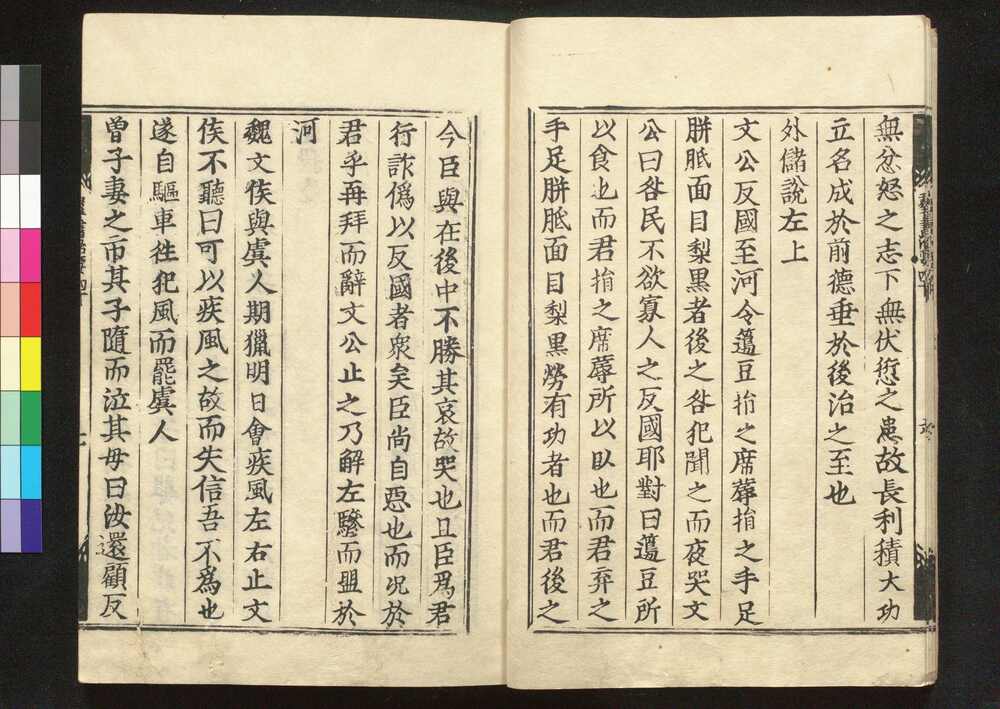 無忿怒之志下無伏愆之患故長利積大功
立名成於前德垂於後治之至也
外儲說左上
文公反國至河令籩豆捐之席蓐捐之手足
胼胝面目梨黑者後之咎犯聞之而夜哭文
公曰咎民不欲寡人之反國耶對曰籩豆所
以食也而君捐之席蓐所以臥也而君弃之
手足胼胝面目梨黑勞有功者也而君後之
今臣與在後中不勝其哀故哭也且臣爲君
行詐僞以反國者衆矣臣尚自惡也而况於
君乎再拜而辭文公止之乃解左驂而盟於
河
魏文侯與虞人期獵明日會疾風左右止文
侯不聽曰可以疾風之故而失信吾不爲也
遂自驅車徃犯風而罷虞人
曾子妻之市其子隨而泣其母曰汝還顧反